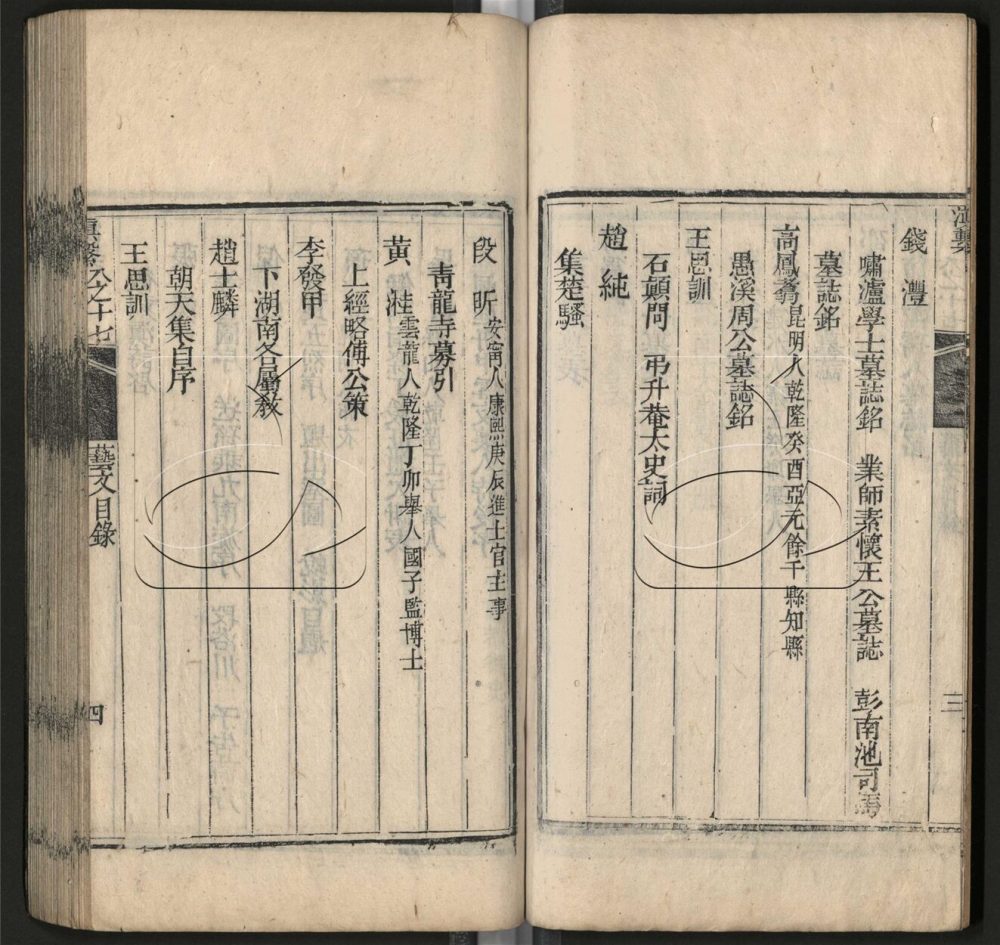 錢灃
嘯瀘學士墓誌銘 業師素懷王公墓誌 彭南池司馬
墓誌銘
高鳳翥昆明人乾隆癸酉亞元餘干縣知縣
愚溪周公墓誌銘
王思訓
石顛問 弔升菴太史詞
趙純
集楚騷
三
段昕安寧人康熙庚辰進士官主事
靑龍寺募引
黃桂雲龍人乾隆丁卯舉人國子監博士
上經略傅公策
李發甲
下湖南各屬敎
趙士麟
朝天集自序
王思訓
滇繫 八之十七
藝文目錄
四